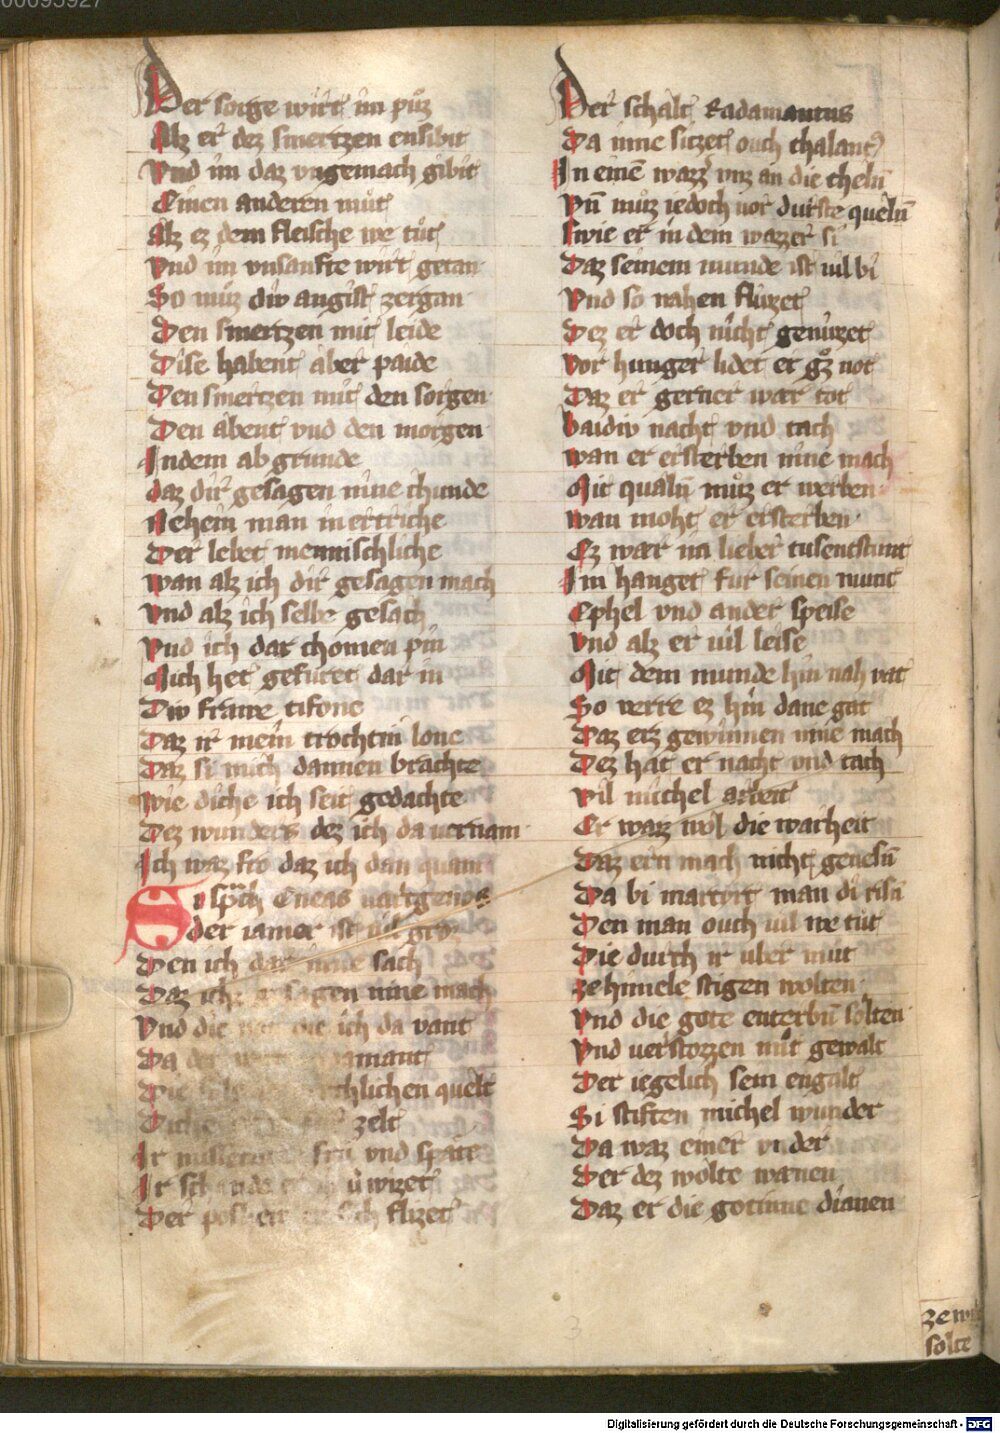 Der sorge wirt im půz
Alz er dez smertzen ensibit
Vnd im daz vngemach gibit
Einen anderen můt
Alz ez dem fleische we tůt
Vnd im vnsanfte wirt getan
So můz div angist zergan
Den smertzen mit leide
Dise habent aber paide
Den smertzen mit den sorgen
Den abent vnd den morgen
Indem abgrunde
daz dir gesagen nine chunde
Nehein man in ertriche
Der lebet mennischliche
wan alz ich dir gesagen mach
vnd alz ich selbe gesach
Vnd ich dar chomen pin
Mich het gefuret dar in
Div frawe tisone
Daz ir mein trochtin lone
Daz si mich dannen brachte
Wie diche ich seit gedachte
Dez wunders dez ich da uernam
Ich waz fro daz ich dan quam
Si sprach Eneas uartgenos
der iamer ist vil groz
Den ich dar inne sach
Daz ichz gesagen nine mach
Vnd die ich da vant
Da der
Die quelt
Diche zelt
Ir frů vnd spate
Ir
Der sich flizet
Der schalt Radamantus
Da inne sitzet ouch thalant9
In einē wazz vnz an die chelñ
Vñ můz iedoch uor durste quelñ
swie er in dem wazzer si
Daz seinem munde ist uil bi
Vnd so nahen fluzet
Dez er doch nicht genuzet
vor hunger lidet er gz not
Daz er gerner wer tot
baidiv nacht vnd tach
wan er ersterben nine mach
Mit qualñ můz er werben
wan moht er ersterben
Ez war im lieber tusentstunt
Im hanget fur seinen munt
Ephel vnd ander speise
Vnd alz er uil leise
Mit dem munde hin nah vat
So verre ez hin dane gat
Daz erz gewinnen nine mach
Dez hat er nacht vnd tach
vil michel arbeit
Er waz wol die warheit
Daz ern mach nicht genesñ
Da bi martyrt man di risñ
Den man ouch uil we tůt
Die durch ir uber můt
ze himele stigen wolten
Vnd die gote enterbñ solten
Vnd uerstozzen mit gewalt
Der iegelich sein engalt
Si stiften michel wunder
Da waz einer vnder
Der dez wolte wanen
Daz er die gotinne dianen
zewi
solte
Digitalisierung gefördert durch die Deutsche Forschungsgemeinschaft - DFG